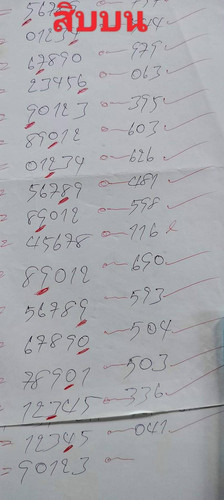 สิบบน
56789
01234
67890 979
23456 063
90123 395
89012 603
01234 626
56789 481
89012 598
45678 116
89012 690
56789 593
67890 504
78901 503
12345 336
12345 041
90123